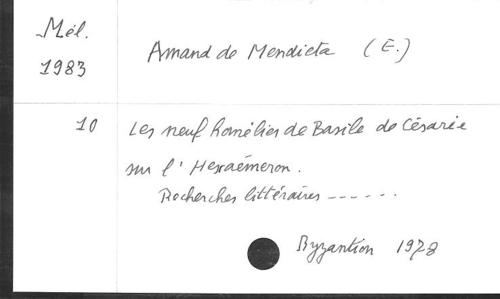 Mél.
1983
Amand de Mendieta (E.)
10
Les neuf homélies de Basile de Césarée
sur l'Hexaémeron.
Recherches littéraires ------.
Byzantion 1978